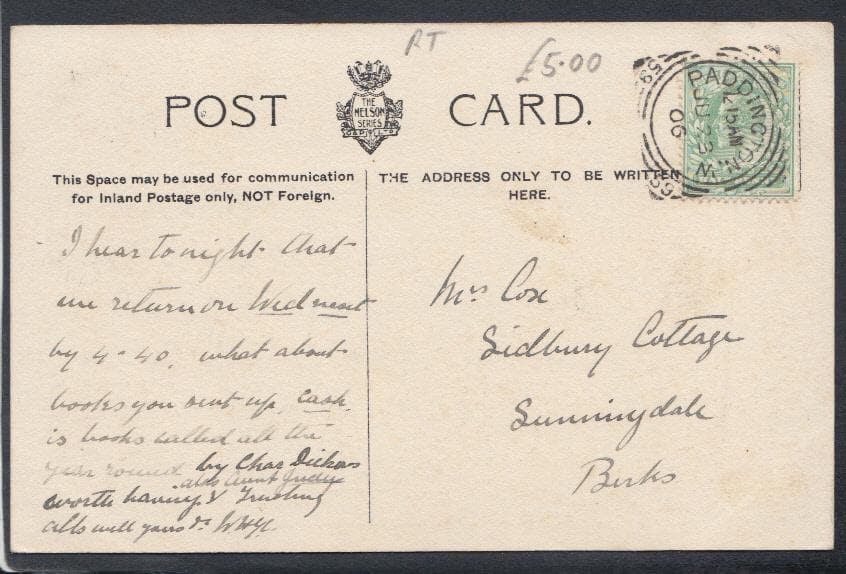 RT
£5.00
POST CARD.
THE
NELSON
SERIES
PADDINGTON. W
4.15AM
JU 23
06
This Space may be used for communication
for Inland Postage only, NOT Foreign.
THE ADDRESS ONLY TO BE WRITTEN
HERE.
I hear tonight that
we return on Wed next
by 4-40. what about
books you sent up. Cash.
is books called all the
year round by Chas Dickens
also Aunt Judys
worth having & Trusting
all well yours
Mrs Cox
Sidbury Cottage
Sunningdale
Berks